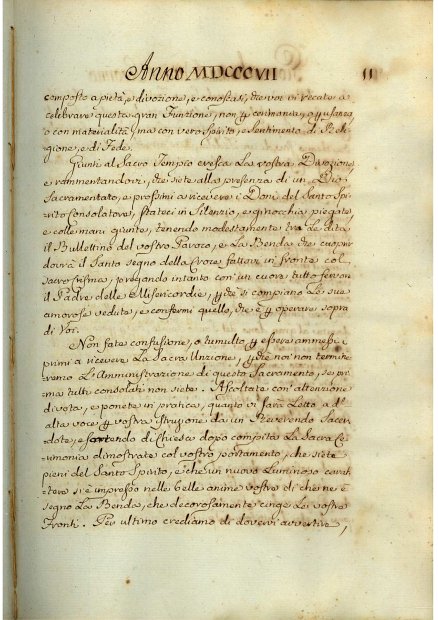 Anno MDCCCVII 11
composto a pietà, e divozione, e conoscasi, che voi vi recate a
celebrare questa gran Funzione, non per costumanza, o per usanza
o con materialità, ma con vero spirito, e sentimento di Reli-
gione, e di Fede.
Giunti al Sacro Tempio cresca la vostra Divozione,
e rammentandovi, che siete alla presenza di un Dio
Sacramentato, e prossimi a ricevere i Doni del Santo Spi-
rito consolatore, stateci in Silenzio, e ginocchia piegate,
e colle mani giunte, tenendo modestamente tra le dita
il Bullettino del vostro Paroco, e la Benda che cuoprir
dovrà il Santo segno della Croce fattovi in fronte col
sacro Crisma, pregando intanto con un cuore tutto fervore
il Padre delle Misericordie, perchè si compiano le sue
amorose vedute, e confermi quello, che è per operare sopra
di Voi.
Non fate confusione, o tumulto per essere ammessi i
primi a ricevere la Sacra Unzione, perchè noi non termine-
remo l'Amministrazione di questo Sacramento, se pri-
ma tutti consolati non siete. Ascoltate con attenzione
divota, e ponete in pratica, quanto vi sarà Letto ad
alta voce per vostra istruzione da un Reverendo Sacer-
dote, e sortendo di Chiesa dopo compita la Sacra Ce-
rimonia dimostrate col vostro portamento, che siete
pieni del Santo Spirito, e che un nuovo Luminoso carat-
tere si è impresso nelle belle anime vostre di che ne è
segno la Benda, che decorosamente cinge le vostre
Fronti. Per ultimo crediamo di dovervi avvertire,